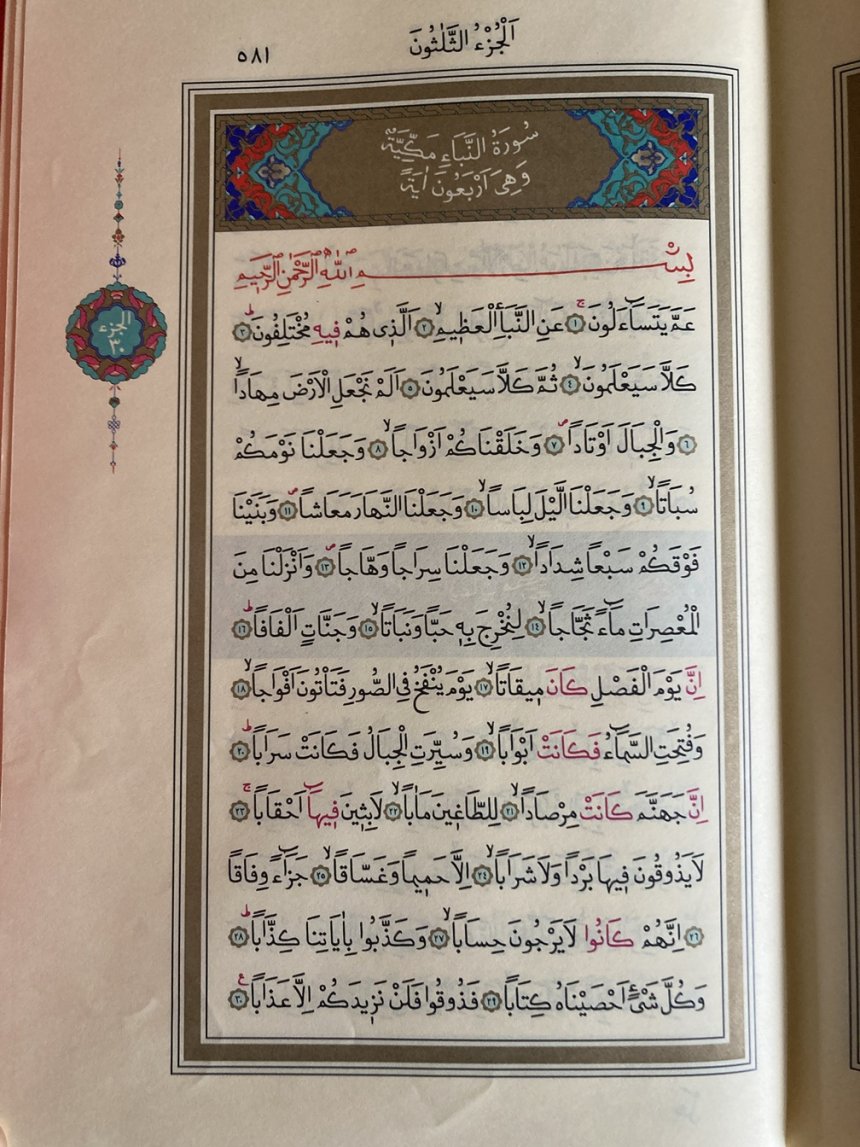 اَلْجُزْءُ الثَّلٰثُونَ
٥٨١
سُورَةُ النَّبَاِ مَكِّيَّةٌ
وَهِىَ اَرْبَعُونَ اٰيَةً
الجزء
٣٠
بِسْــــــــــمِ اللّٰهِ الرَّحْمٰنِ الرَّحٖيمِ
عَمَّ يَتَسَٓاءَلُونَۚ ﴿١﴾ عَنِ النَّبَأِ الْعَظٖيمِۙ ﴿٢﴾ اَلَّذٖى هُمْ فٖيهِ مُخْتَلِفُونَۜ ﴿٣﴾
كَلَّا سَيَعْلَمُونَۙ ﴿٤﴾ ثُمَّ كَلَّا سَيَعْلَمُونَ ﴿٥﴾ اَلَمْ نَجْعَلِ الْاَرْضَ مِهَادًاۙ
﴿٦﴾ وَالْجِبَالَ اَوْتَادًاۖ ﴿٧﴾ وَخَلَقْنَاكُمْ اَزْوَاجًاۙ ﴿٨﴾ وَجَعَلْنَا نَوْمَكُمْ
سُبَاتًاۙ ﴿٩﴾ وَجَعَلْنَا الَّيْلَ لِبَاسًاۙ ﴿١٠﴾ وَجَعَلْنَا النَّهَارَ مَعَاشًاۖ ﴿١١﴾ وَبَنَيْنَا
فَوْقَكُمْ سَبْعًا شِدَادًاۙ ﴿١٢﴾ وَجَعَلْنَا سِرَاجًا وَهَّاجًاۖ ﴿١٣﴾ وَاَنْزَلْنَا مِنَ
الْمُعْصِرَاتِ مَٓاءً ثَجَّاجًاۙ ﴿١٤﴾ لِنُخْرِجَ بِهٖ حَبًّا وَنَبَاتًاۙ ﴿١٥﴾ وَجَنَّاتٍ اَلْفَافًاۜ ﴿١٦﴾
اِنَّ يَوْمَ الْفَصْلِ كَانَ مٖيقَاتًاۙ ﴿١٧﴾ يَوْمَ يُنْفَخُ فِى الصُّورِ فَتَأْتُونَ اَفْوَاجًاۙ ﴿١٨﴾
وَفُتِحَتِ السَّمَٓاءُ فَكَانَتْ اَبْوَابًاۙ ﴿١٩﴾ وَسُيِّرَتِ الْجِبَالُ فَكَانَتْ سَرَابًاۜ ﴿٢٠﴾
اِنَّ جَهَنَّمَ كَانَتْ مِرْصَادًاۙ ﴿٢١﴾ لِلطَّاغٖينَ مَاٰبًاۙ ﴿٢٢﴾ لَابِثٖينَ فٖيهَٓا اَحْقَابًاۚ ﴿٢٣﴾
لَا يَذُوقُونَ فٖيهَا بَرْدًا وَلَا شَرَابًاۙ ﴿٢٤﴾ اِلَّا حَمٖيمًا وَغَسَّاقًاۙ ﴿٢٥﴾ جَزَٓاءً وِفَاقًا
﴿٢٦﴾ اِنَّهُمْ كَانُوا لَا يَرْجُونَ حِسَابًاۙ ﴿٢٧﴾ وَكَذَّبُوا بِاٰيَاتِنَا كِذَّابًاۜ ﴿٢٨﴾
وَكُلَّ شَىْءٍ اَحْصَيْنَاهُ كِتَابًا ﴿٢٩﴾ فَذُوقُوا فَلَنْ نَزٖيدَكُمْ اِلَّا عَذَابًا ﴿٣٠﴾ ع